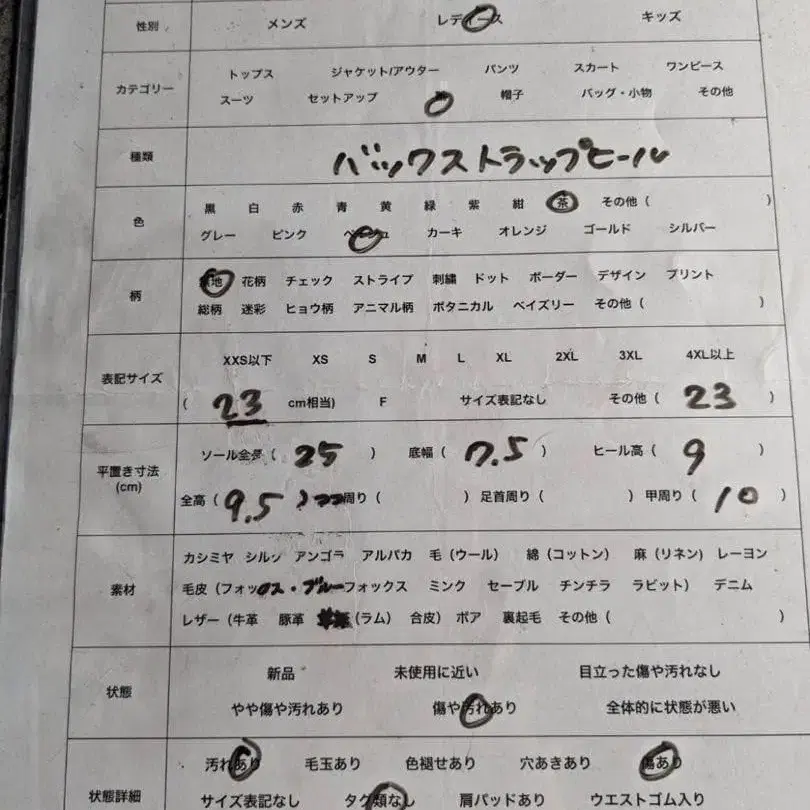 性別 メンズ レディース キッズ
カテゴリー トップス ジャケット/アウター パンツ スカート ワンピース
スーツ セットアップ 帽子 バッグ・小物 その他
種類 バックストラップヒール
色 黒 白 赤 青 黄 緑 紫 紺 茶 その他( )
グレー ピンク ベージュ カーキ オレンジ ゴールド シルバー
柄 無地 花柄 チェック ストライプ 刺繍 ドット ボーダー デザイン プリント
総柄 迷彩 ヒョウ柄 アニマル柄 ボタニカル ペイズリー その他( )
表記サイズ XXS以下 XS S M L XL 2XL 3XL 4XL以上
( 23 cm相当) F サイズ表記なし その他( 23 )
平置き寸法(cm) ソール全長( 25 ) 底幅( 7.5 ) ヒール高( 9 )
全高( 9.5 ) 周り( ) 足首周り( ) 甲周り( 10 )
素材 カシミヤ シルク アンゴラ アルパカ 毛(ウール) 綿(コットン) 麻(リネン) レーヨン
毛皮(フォックス・ブルーフォックス ミンク セーブル チンチラ ラビット) デニム
レザー(牛革 豚革 (ラム) 合皮) ボア 裏起毛 その他( )
状態 新品 未使用に近い 目立った傷や汚れなし
やや傷や汚れあり 傷や汚れあり 全体的に状態が悪い
状態詳細 汚れあり 毛玉あり 色褪せあり 穴あきあり 傷あり
サイズ表記なし タグ類なし 肩パッドあり ウエストゴム入り